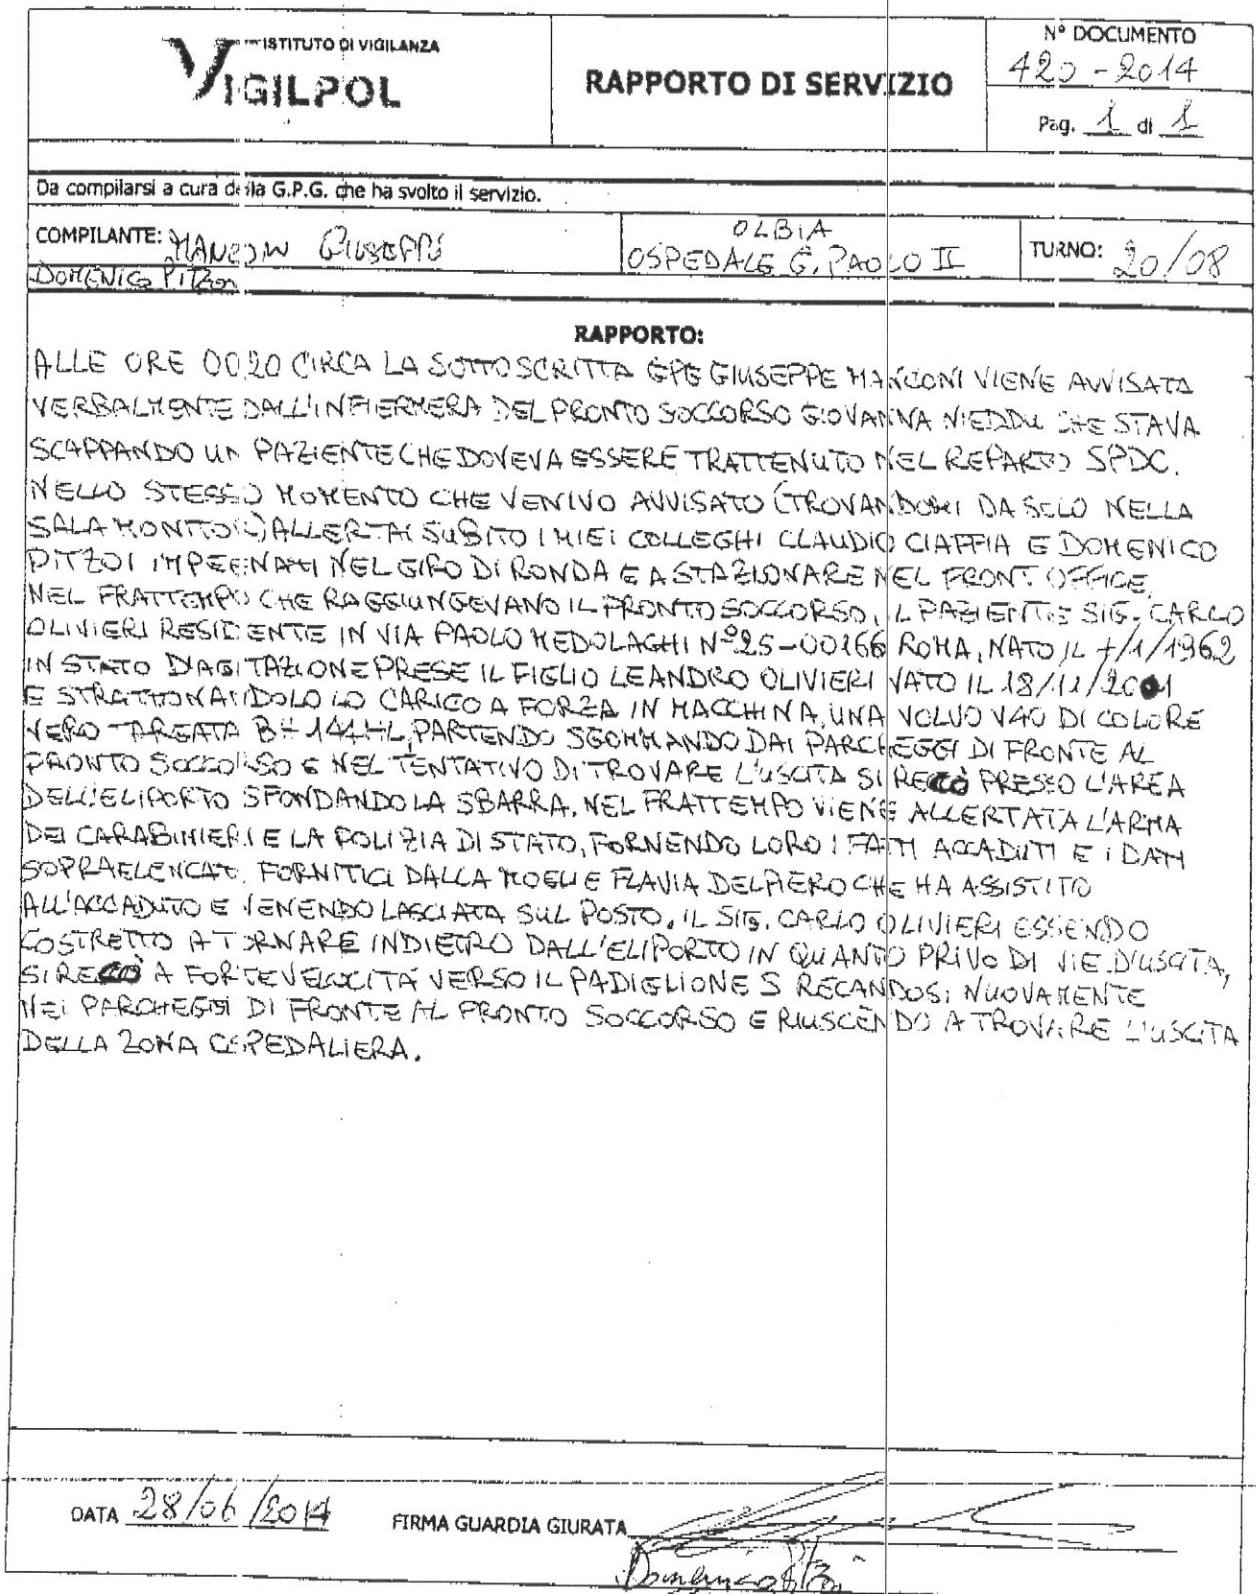 ISTITUTO DI VIGILANZA
VIGILPOL
RAPPORTO DI SERVIZIO
N° DOCUMENTO
420 - 2014
Pag. 1 di 1
Da compilarsi a cura della G.P.G. che ha svolto il servizio.
COMPILANTE: GIUSEPPE
DOMENICO
OLBIA
OSPEDALE G. PAOLO II
TURNO: 20/08
RAPPORTO:
ALLE ORE 00.20 CIRCA LA SOTTOSCRITTA GPG GIUSEPPE MANZONI VIENE AVVISATA
VERBALMENTE DALL'INFIERMERA DEL PRONTO SOCCORSO GIOVANNA NIEDDU CHE STAVA
SCAPPANDO UN PAZIENTE CHE DOVEVA ESSERE TRATTENUTO NEL REPARTO SPDC.
NELLO STESSO MOMENTO CHE VENIVO AVVISATO (TROVANDOMI DA SOLO NELLA
SALA MONITOR) ALLERTAI SUBITO I MIEI COLLEGHI CLAUDIO CIAFFIA E DOMENICO
PITZOI IMPEGNATI NEL GIRO DI RONDA E A STAZIONARE NEL FRONT OFFICE.
NEL FRATTEMPO CHE RAGGIUNGEVANO IL PRONTO SOCCORSO, IL PAZIENTE SIG. CARLO
OLIVIERI RESIDENTE IN VIA PAOLO MEDOLAGHI N°25-00166 ROMA, NATO IL /1/1962
IN STATO D'AGITAZIONE PRESE IL FIGLIO LEANDRO OLIVIERI NATO IL 18/11/2001
E STRATTONANDOLO LO CARICO A FORZA IN MACCHINA, UNA VOLVO V40 DI COLORE
NERO TARGATA PARTENDO SGOMMANDO DAI PARCHEGGI DI FRONTE AL
PRONTO SOCCORSO E NEL TENTATIVO DI TROVARE L'USCITA SI RECÒ PRESSO L'AREA
DELL'ELIPORTO SFONDANDO LA SBARRA. NEL FRATTEMPO VIENE ALLERTATA L'ARMA
DEI CARABINIERI E LA POLIZIA DI STATO, FORNENDO LORO I FATTI ACCADUTI E I DATI
SOPRAELENCATI FORNITICI DALLA MOGLIE FLAVIA DELPIERO CHE HA ASSISTITO
ALL'ACCADUTO E VENENDO LASCIATA SUL POSTO. IL SIG. CARLO OLIVIERI ESSENDO
COSTRETTO A TORNARE INDIETRO DALL'ELIPORTO IN QUANTO PRIVO DI VIE D'USCITA,
SI RECÒ A FORTE VELOCITÀ VERSO IL PADIGLIONE S RECANDOSI NUOVAMENTE
NEI PARCHEGGI DI FRONTE AL PRONTO SOCCORSO E RIUSCENDO A TROVARE L'USCITA
DELLA ZONA OSPEDALIERA.
DATA 28/06/2014
FIRMA GUARDIA GIURATA